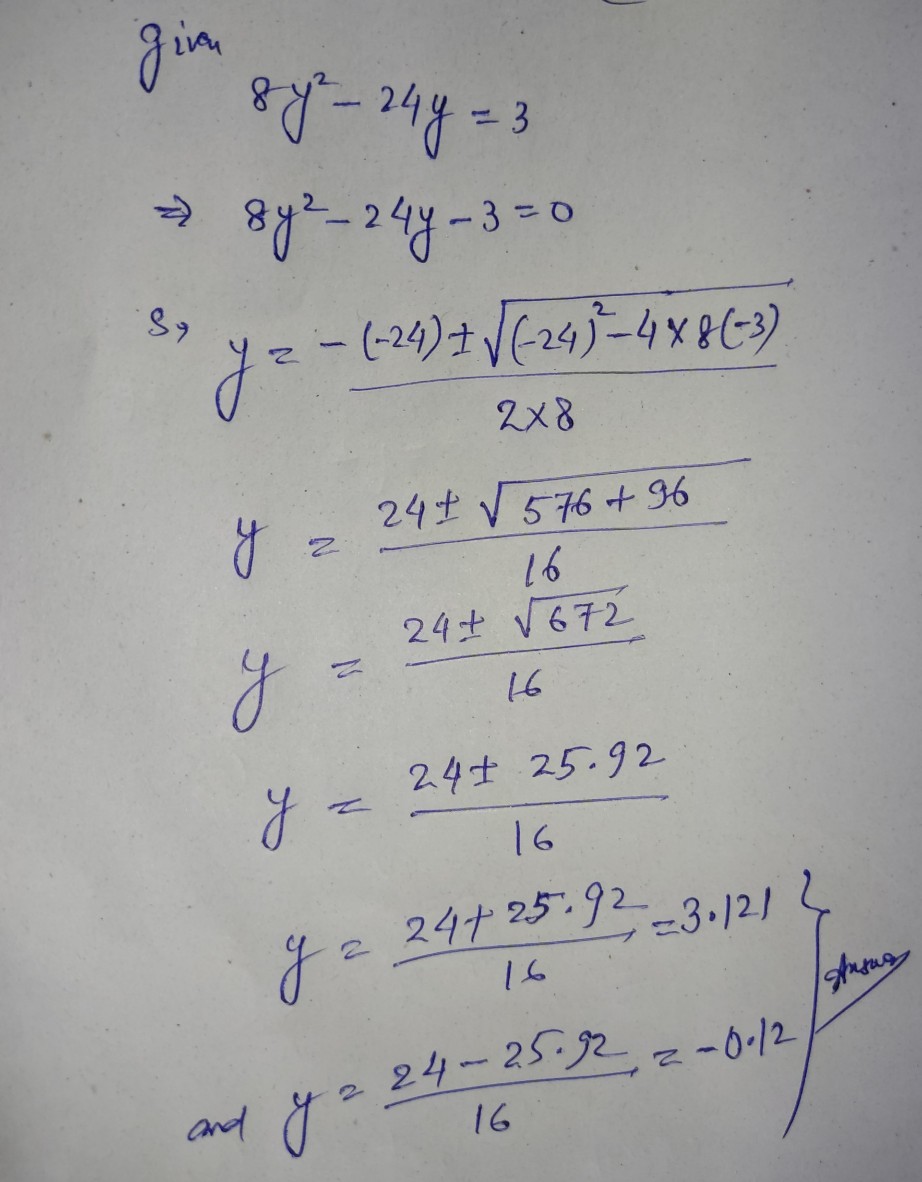 given
8y² - 24y = 3
⇒ 8y² - 24y - 3 = 0
So, y = -(-24) ± √(-24)² - 4 × 8(-3)
2×8
y = 24 ± √576 + 96
16
y = 24 ± √672
16
y = 24 ± 25.92
16
y = 24 + 25.92 = 3.121
16
Answer
and y = 24 - 25.92 = -0.12
16